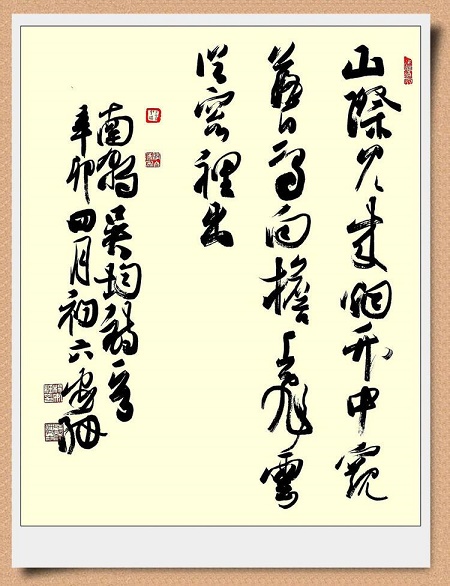 山際見來烟竹中窺
落日鳥向檐上飛雲
從窗裡出
南朝吳均詩一首
辛卯四月初六